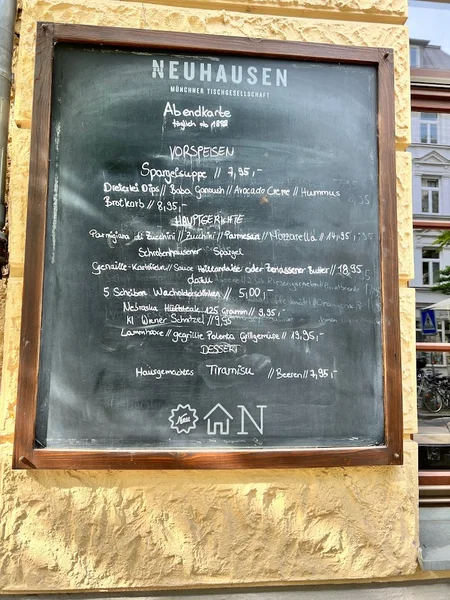 NEUHAUSEN
MÜNCHNER TISCHGESELLSCHAFT
Abendkarte
täglich ab 18
VORSPEISEN
Spargelsuppe // 7,95,-
Dreierlei Dips // Baba Ganoush // Avocado Creme // Hummus
Brotkorb // 8,95,-
HAUPTGERICHTE
Parmigiana di Zucchini // Zucchini // Parmesan // Mozzarella // 14,95,-
Schrobenhausener Spargel
Grenaille-Kartoffeln // Sauce Hollandaise oder Zerlassener Butter // 18,95
dazu
5 Scheiben Wacholderschinken // 5,00,-
Nebraska Hüftsteak 125 Gramm // 9,95,-
Kl Wiener Schnitzel // 9,95
Lammhaxe // gegrillte Polenta Grillgemüse // 19,95,-
DESSERT
Hausgemachtes Tiramisu // Beeren // 7,95,-
Neu
N